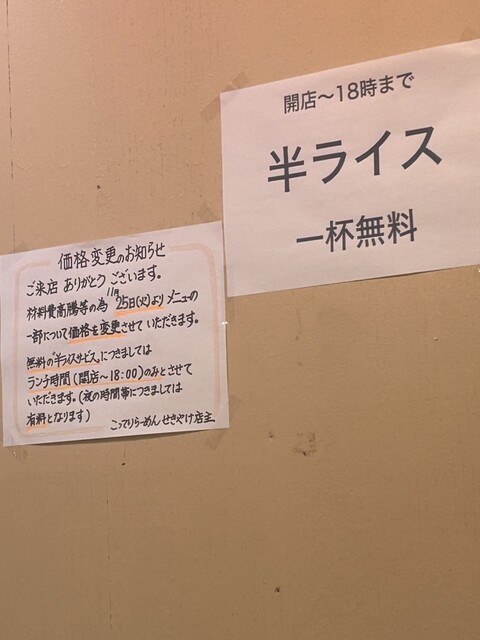 開店〜18時まで
半ライス
一杯無料
価格変更のお知らせ
ご来店 ありがとう ございます。
材料費高騰等の為 11月25日(火)より メニューの
一部について価格を変更させて いただきます。
無料の"半ライスサービス"につきましては
ランチ時間(開店〜18:00)のみとさせて
いただきます。(夜の時間帯につきましては
有料となります)
こってりらーめん せきやけ店主